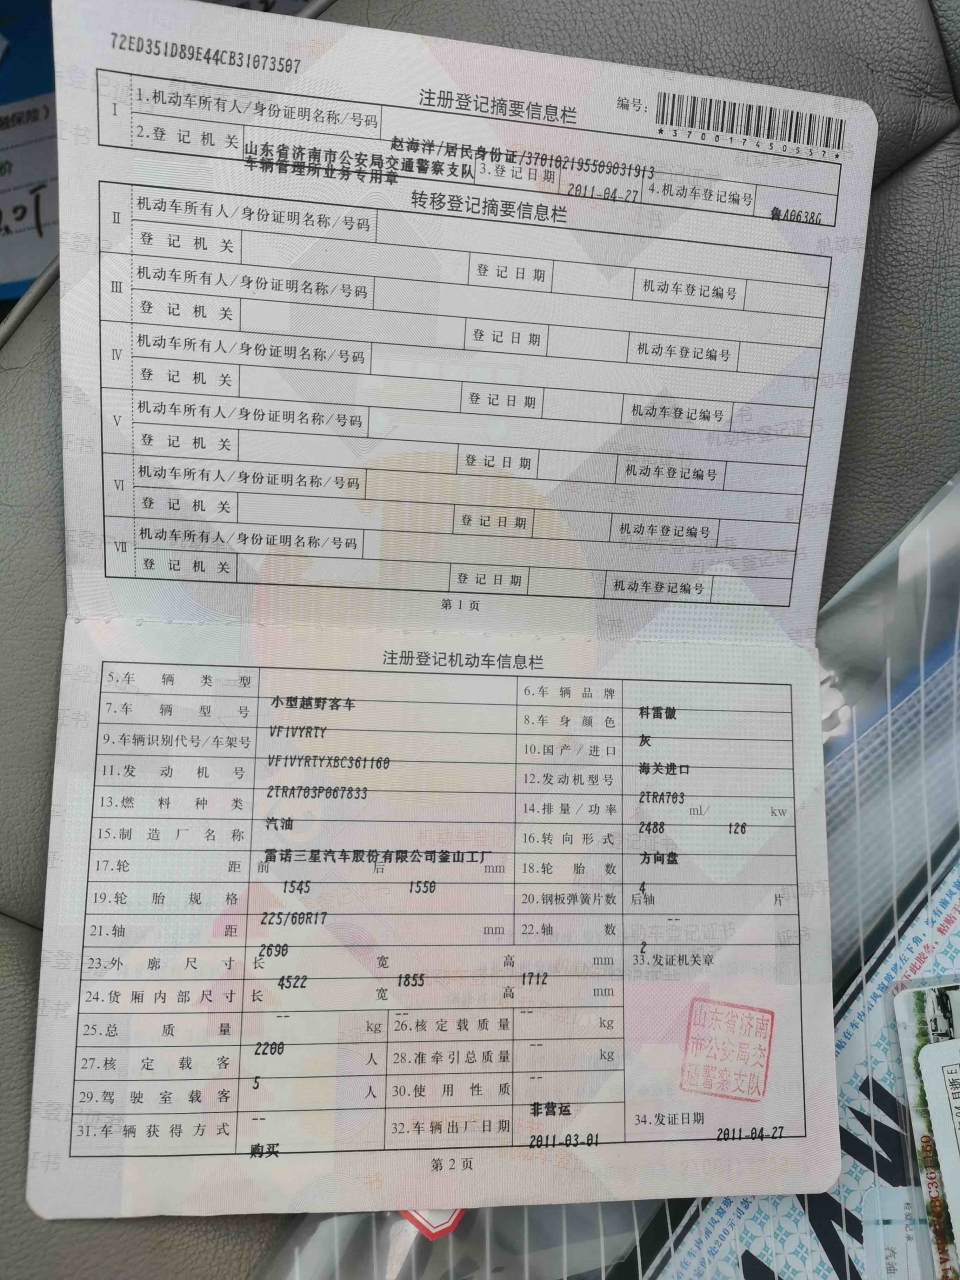 72ED351D89E44CB31073507
注册登记摘要信息栏
编号:
*370017450557*
I 1.机动车所有人/身份证明名称/号码 赵海洋/居民身份证/370102195509031913
2.登记机关 山东省济南市公安局交通警察支队车辆管理所业务专用章 3.登记日期 2011-04-27 4.机动车登记编号 鲁A0638G
转移登记摘要信息栏
II 机动车所有人/身份证明名称/号码
登记机关 登记日期 机动车登记编号
III 机动车所有人/身份证明名称/号码
登记机关 登记日期 机动车登记编号
IV 机动车所有人/身份证明名称/号码
登记机关 登记日期 机动车登记编号
V 机动车所有人/身份证明名称/号码
登记机关 登记日期 机动车登记编号
VI 机动车所有人/身份证明名称/号码
登记机关 登记日期 机动车登记编号
VII 机动车所有人/身份证明名称/号码
登记机关 登记日期 机动车登记编号
第1页
注册登记机动车信息栏
5.车辆类型 小型越野客车 6.车辆品牌 科雷傲
7.车辆型号 VF1VYRTY 8.车身颜色 灰
9.车辆识别代号/车架号 VF1VYRTYXBC361160 10.国产/进口 海关进口
11.发动机号 2TRA703P067833 12.发动机型号 2TRA703
13.燃料种类 汽油 14.排量/功率 2488 ml/ 126 kw
15.制造厂名称 雷诺三星汽车股份有限公司釜山工厂 16.转向形式 方向盘
17.轮距 前 1545 后 1550 mm 18.轮胎数 4
19.轮胎规格 225/60R17 20.钢板弹簧片数 后轴 -- 片
21.轴距 2690 mm 22.轴数 2
23.外廓尺寸 长 4522 宽 1855 高 1712 mm 33.发证机关章
24.货厢内部尺寸 长 -- 宽 -- 高 -- mm
25.总质量 2200 kg 26.核定载质量 -- kg
27.核定载客 5 人 28.准牵引总质量 -- kg
29.驾驶室载客 -- 人 30.使用性质 非营运
31.车辆获得方式 购买 32.车辆出厂日期 2011-03-01 34.发证日期 2011-04-27
山东省济南
市公安局交
通警察支队
第2页
汽油